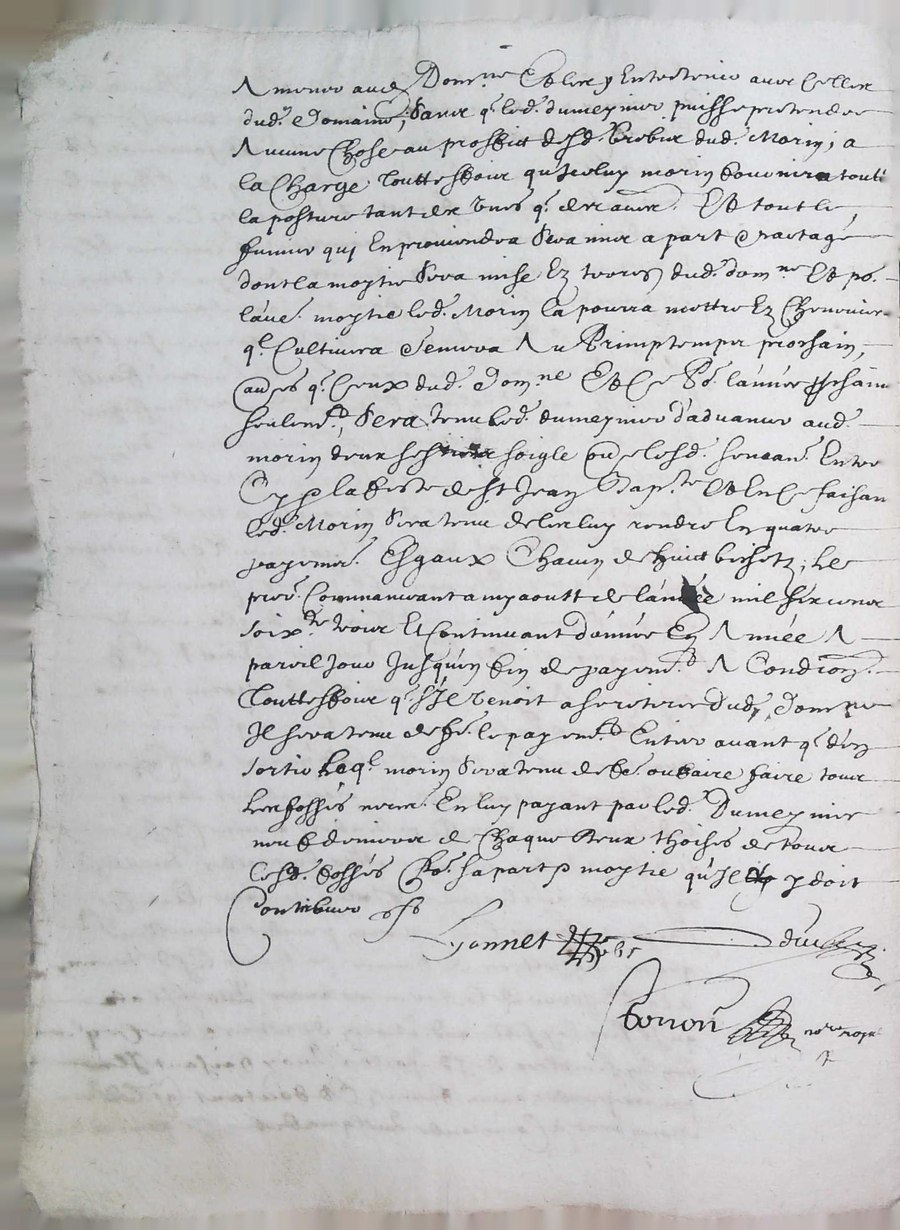 A mener aud. Dom.ne Et les y Entretenir avec Celles
dud. Domaine, Sans q. led. dumeynier puisse pretendre
Aucune Chose au proffit desd. brebis dud. Morin, a
la Charge touttesfois qu'Icelluy morin fournira toutte
la posture tant des unes q. des autres. Et tout le
fumier qui En proviendra Sera mis a part & partagé
dont la moytie Sera mise Ez terres dud. dom.ne Et po.
l'au.e moytie led. Morin la pourra mettre Ez Chenevier
q.l Cultivera Semera Au Primptemps prochain,
q. Ceux dud. Dom.ne Et Ce P. l'année pchaine
seulem.t, Sera tenu led. dumeynier d'advancer aud.
morin deux soigle Entre
Cy & la feste de St Jean Bap.te Et En Ce faisan
led. Morin Sera tenu de les luy rendre En quatre
payemen. Esgaux Chacun de huict bichetz, le
pre.r Commancant a my aoutt de l'année mil six cens
soix.te trois Et Continuant d'année En Année A
pareil jour Jusqu'en fin de payem.t A Condion
touttesfois q. s'Il venoit a se retirer Dud. Dom.ne
Il sera tenu de fe. le payem.t Entier avant q. d'en
sortir Leq.l morin Sera tenu de fe. ou faire faire tous
les fossés neces. En luy payant par led. Dumeynier
neuf deniers de Chaque deux thoises de tous
Cesd. fossés P. sa part & moytie qu'Il y doit
Contribuer
Lyonnet
tonon no.re royal